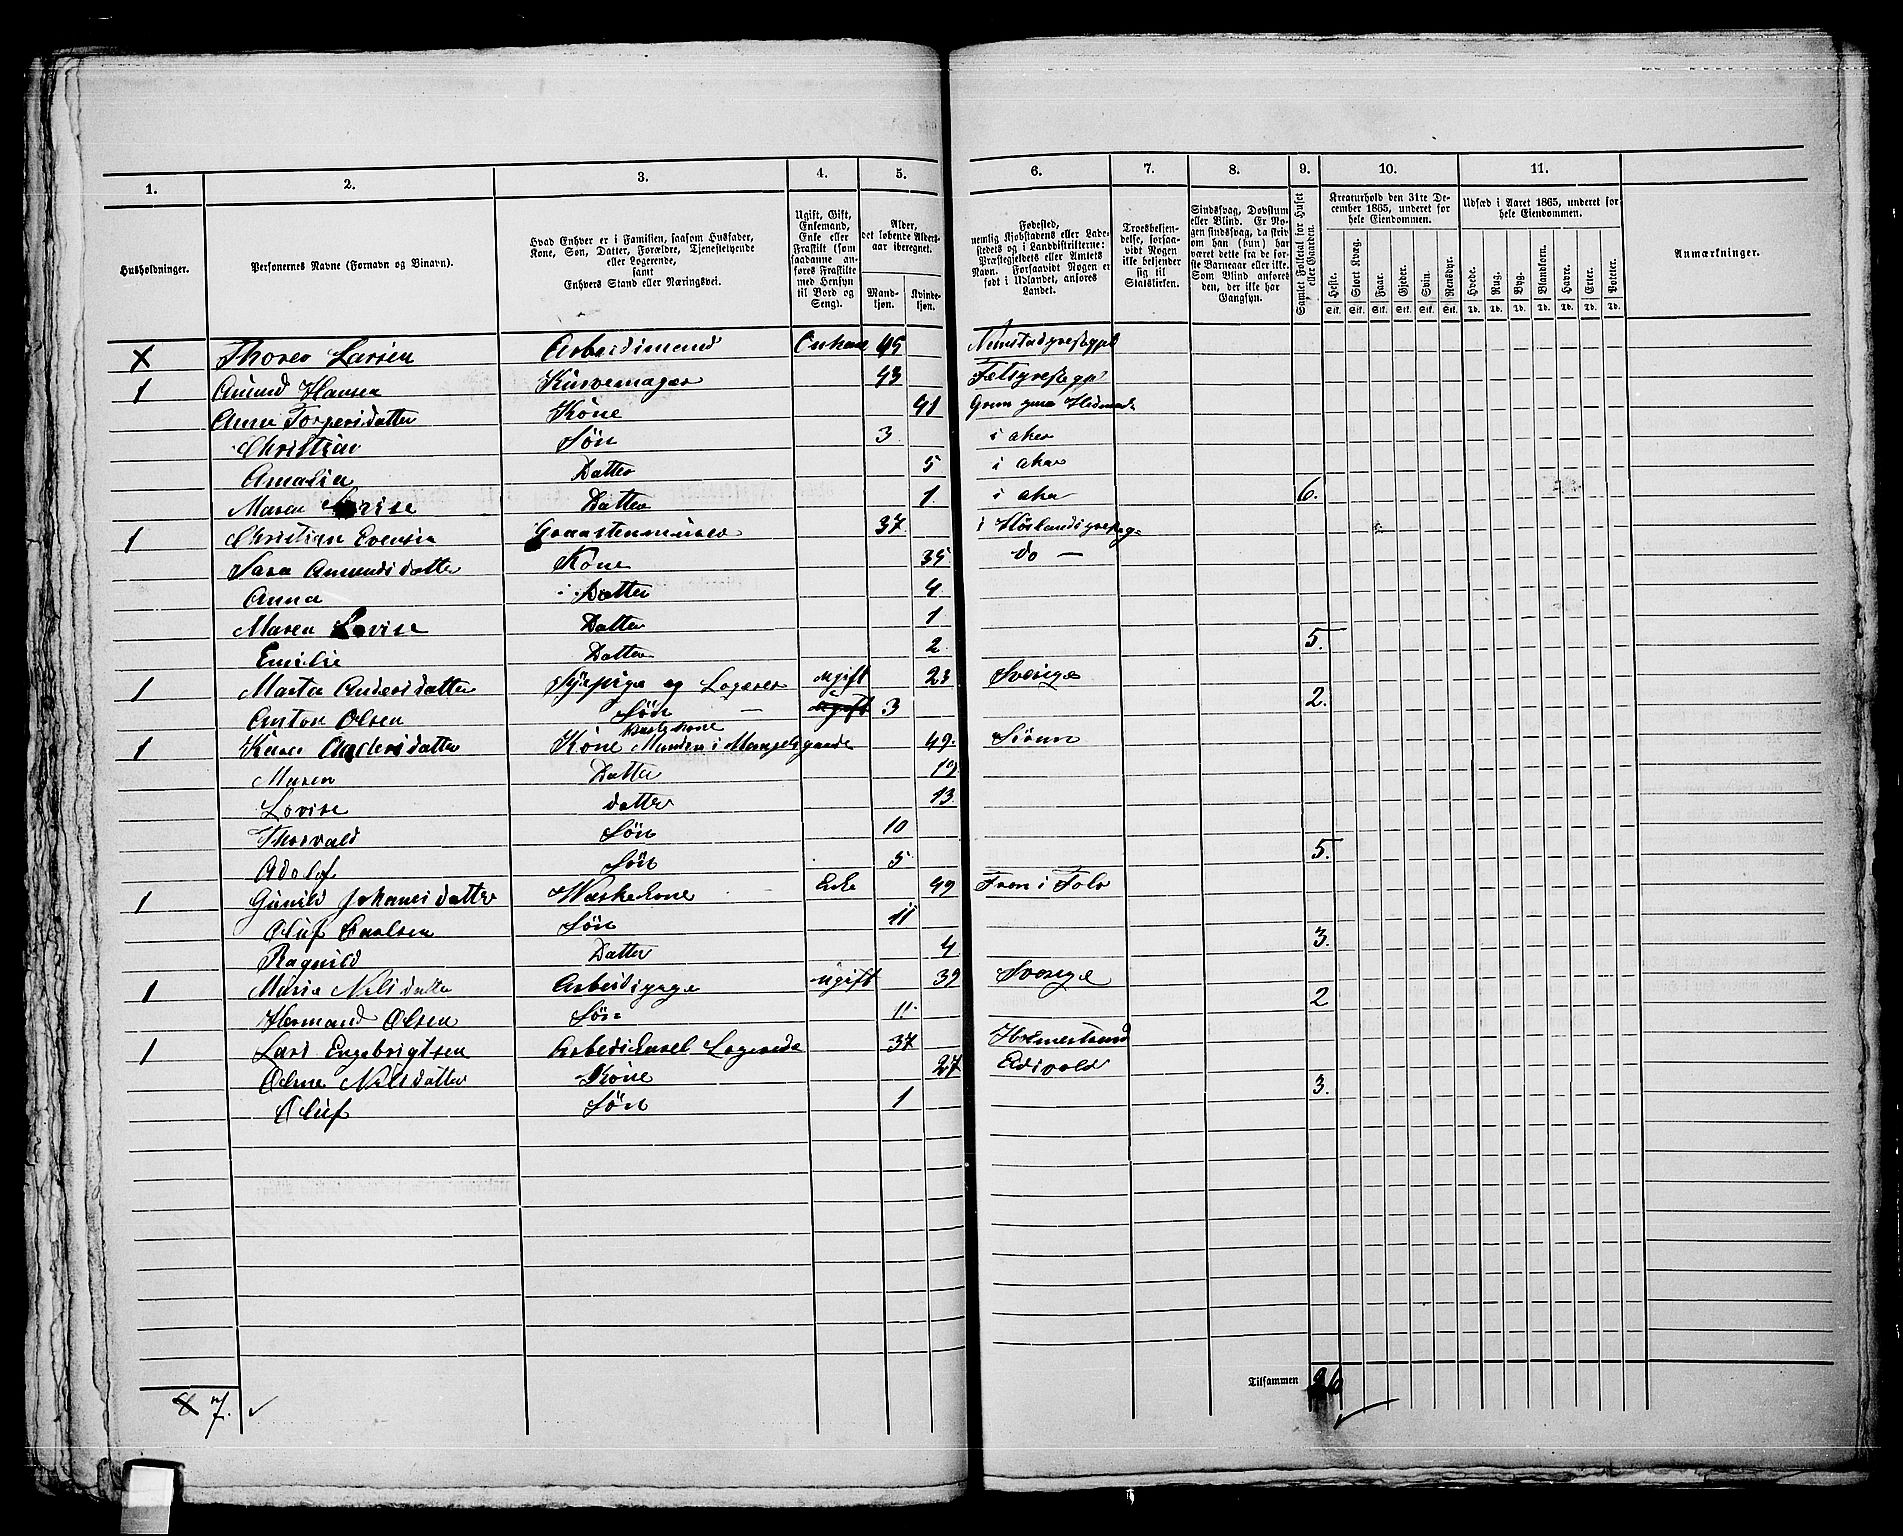 1. 2. 3. 4. 5. 6. 7. 8. 9. 10. 11.
Husholdninger.
Personernes Navne (Fornavn og Binavn).
Hvad Enhver er i Familien, saasom Husfader,
Kone, Søn, Datter, Forældre, Tjenestetyende
eller Logerende,
samt
Enhvers Stand eller Næringsvei.
Ugift, Gift,
Enkemand,
Enke eller
Fraskilt (som
saadanne an-
føres Fraskilte
med Hensyn
til Bord og
Seng).
Alder,
det løbende Alders-
aar iberegnet.
Mand-
kjøn.
Kvinde-
kjøn.
Fødested,
nemlig Kjøbstadens eller Lade-
stedets og i Landdistrikterne:
Præstegjeldets eller Amtets
Navn. Forsaavidt Nogen er
født i Udlandet, anføres
Landet.
Troesbekjen-
delse, forsaa-
vidt Nogen
ikke bekjender
sig til
Statskirken.
Sindssvag, Døvstum
eller Blind. Er No-
gen sindssvag, da skriv
om han (hun) har
været dette fra de før-
ste Barneaar eller ikke.
Som Blind anføres
den, der ikke har
Gangsyn.
Samlet Folketal for Huset
eller Gaarden.
Kreaturhold den 31te De-
cember 1865, underet for
hele Eiendommen.
Heste. Stort Kvæg. Faar. Gjeder. Svin. Rensdyr.
Stk. Stk. Stk. Stk. Stk. Stk.
Udsæd i Aaret 1865, underet for
hele Eiendommen.
Hvede. Rug. Byg. Blandkorn. Havre. Erter. Poteter.
Td. Td. Td. Td. Td. Td. Td.
Anmærkninger.
X Thorer Larsen Arbeidsmand 45
1 Amund Hansen Kurvemager 43
Anna Torpersdatter Kone 41
Christian Søn 3 i aker
Amalia Datter 5 i aker
Maren Lovise Datter 1. i aker 6.
1 Christian Evensen Graastensmurer 37
Sara Amundsdatter Kone 35 do —
Anna Datter 4
Maren Lovise Datter 1
Emilie Datter 2 5.
1 Marta Andersdatter Sypige og Logerer ugift 23 Sverige
Anton Olsen Søn — ugift 3 2.
1 Karen Andersdatter Kone Manden i Mangelsgaarde 49. Sørum
Maren Datter
Lovise datter 13.
Thorvald Søn 10
Adolf Søn 5 5.
1 Gunild Johanesdatter Waskekone Enke 49 Fron i
Oluf Søn 11
Ragnild Datter 4 3.
1 Maria Nilsdatter Arbeidspige ugift 39 Sverige
Hermand Olsen Søn 11. 2
1 Lars Engebrigtsen Logerede 37 Holmestrand
Nilsdatter Kone 27 Eidsvold
Oluf Søn 1 3.
8 7. ✓
Tilsammen 26 ✓